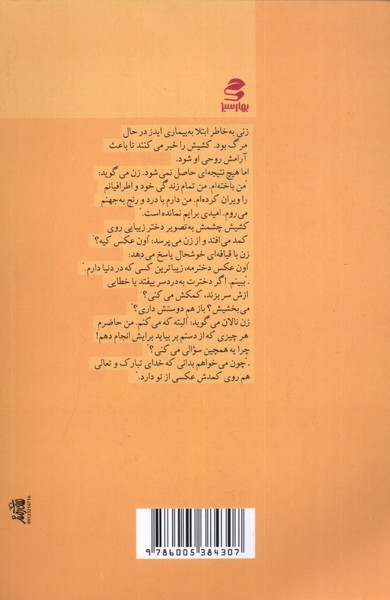 بهارسبز
زنی به‌خاطر ابتلا به‌بیماری ایدز در حال
مرگ بود. کشیش را خبر می‌کنند تا باعث
آرامش روحی او شود.
اما هیچ نتیجه‌ای حاصل نمی‌شود. زن می‌گوید:
"من باخته‌ام. من تمام زندگی خود و اطرافیانم
را ویران کرده‌ام. من دارم با درد و رنج به‌جهنم
می‌روم. امیدی برایم نمانده است."
کشیش چشمش به‌تصویر دختر زیبایی روی
کمد می‌افتد و از زن می‌پرسد: "اون عکس کیه؟"
زن با قیافه‌ای خوشحال پاسخ می‌دهد:
"اون عکس دخترمه، زیباترین کسی که در دنیا دارم."
"ببینم. اگر دخترت به‌دردسر بیفتد یا خطایی
ازش سر بزند، کمکش می‌کنی؟
می‌بخشیش؟ باز هم دوستش داری؟"
زن نالان می‌گوید: "البته که می‌کنم. من حاضرم
هر چیزی که از دستم بر بیاید برایش انجام دهم!
چرا یه همچین سؤالی می‌کنی؟"
"چون می‌خواهم بدانی که خدای تبارک و تعالی
هم روی کمدش عکسی از تو دارد."
9 786005 384307